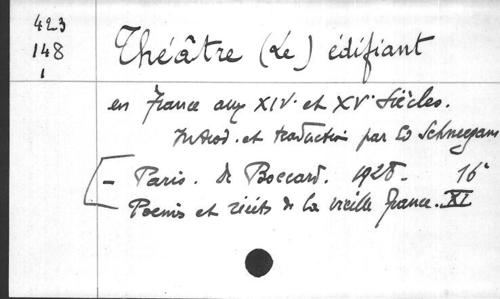 423
148
1
Théâtre (Le) édifiant
en France aux XIVe et XVe Siècles.
Introd. et traduction par Ed Schneegans
- Paris. de Boccard. 1928. 16°
Poèmes et récits de la vieille france. XI